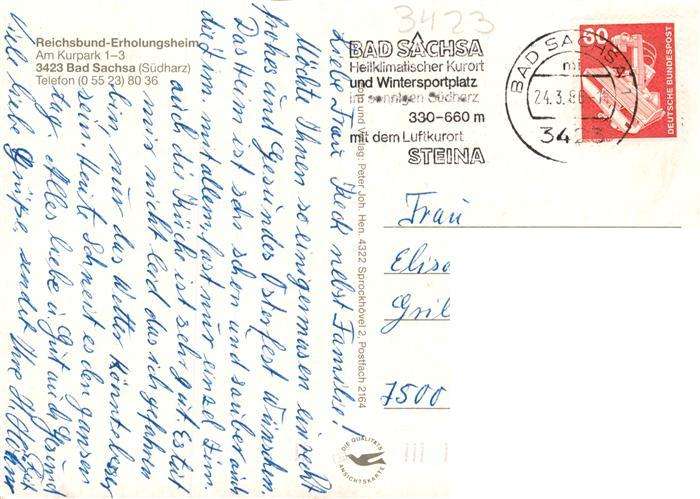 3423
Reichsbund-Erholungsheim
Am Kurpark 1–3
3423 Bad Sachsa (Südharz)
Telefon (0 55 23) 80 36
BAD SACHSA
Heilklimatischer Kurort
und Wintersportplatz
im sonnigen Südharz
330–660 m
mit dem Luftkurort
STEINA
BAD SACHSA 1
mt
24.3.86
3423
60
DEUTSCHE BUNDESPOST
Verlag: Peter Joh. Hen. 4322 Sprockhövel 2, Postfach 2164
Liebe Frau Kech nebst Familie!
Möchte Ihnen so einigermasen ein recht
frohes und Gesundes Osterfest Wünschen.
Das Heim ist sehr schon und sauber auch
die Zim. mit allem, fast nur einzel Zim.
auch die Küch ist sehr gut. Es tut
mir nicht leid das ich gefahren
nur das Wetter könnte besser
sein. Heute Schneit es den ganzen
Tag. Alles liebe u. Gut auch Gesund
Viel liebe Grüsse, sendet Ihre
Frau
Elisa
Gril
7500
DIE QUALITÄTS
ANSICHTSKARTE